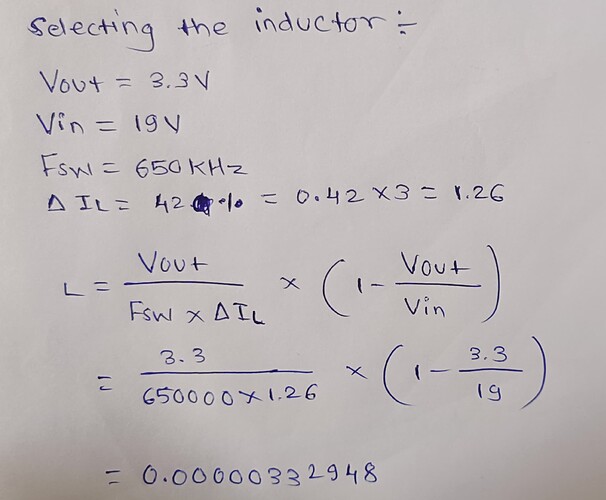 Selecting the inductor :-
Vout = 3.3V
Vin = 19V
Fsw = 650KHz
Δ IL = 42 % = 0.42 × 3 = 1.26
L = Vout / Fsw × Δ IL × (1 - Vout / Vin)
= 3.3 / 650000 × 1.26 × (1 - 3.3 / 19)
= 0.00000332948